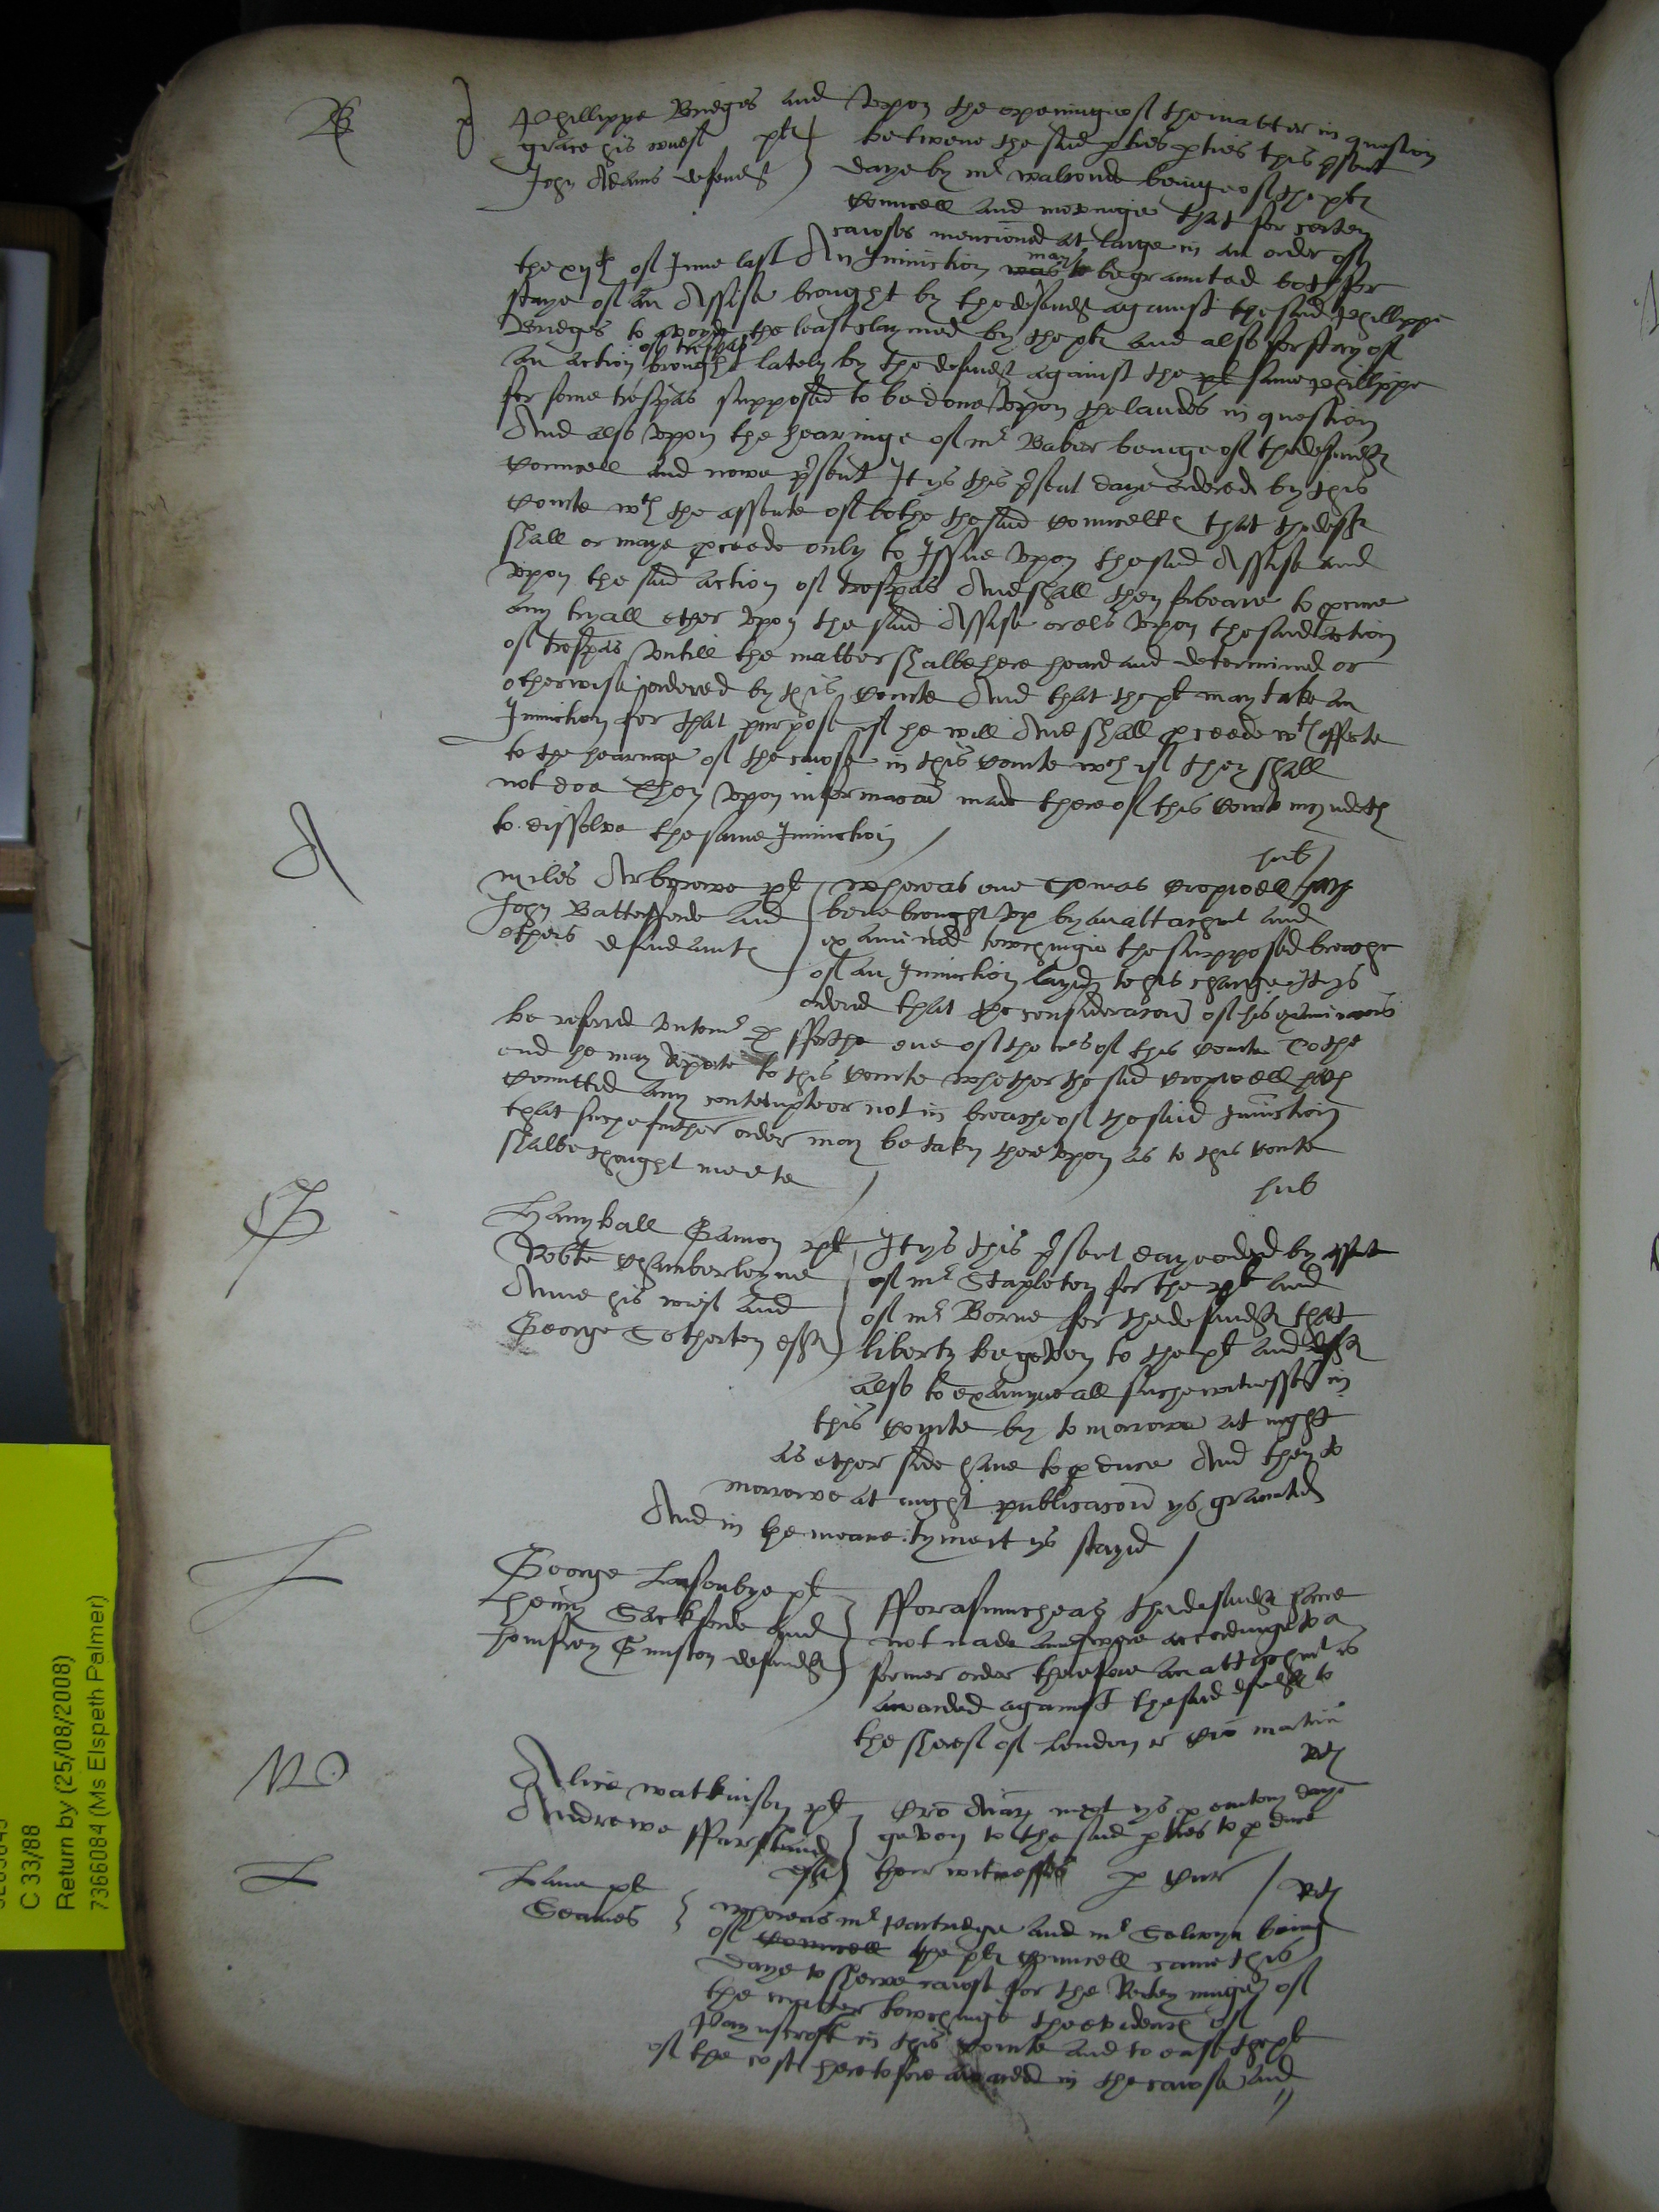 B
Phillippe Bridges and
grace his wieff plt
John Adams defend
Vpon the openinge of the matter in question
betwene the said pties pties this psent
daye by mr walronde beinge of the plt
councell and movinge that for certen
causes mencioned at large in an order of
the xijth of June last An Iniunction may be graunted both for
staye of an Assise brought by the defend against the said Phillippe
Bridges to avoyde the lease claymed by the plt and also for stay of
an action of trespas brought lately by the defend against the plt same Phillippe
for some trespas supposed to be done vpon the landes in question
And also vpon the hearinge of mr Baber beinge of the defend
councell and nowe psent It ys this psent daye ordered by this
courte wth the assente of bothe the said councells that the deft
shall or maye pceede only to Issue vpon the said Assise and
vpon the said action of trespas And shall then forbeare to pcure
any tryall ether vpon the said Assise or els vpon the said action
of trespas vntill the matter shalbe here heard and determined or
otherwise ordered by this courte And that the plt may take an
Iniunction for that purpose yf he will And shall pceede wth effecte
to the hearinge of the cause in this courte wch yf they shall
not doe Then vpon informacon made thereof this courte myndeth
to dissolve the same Iniunction
A
Miles plt
John and
others defendants
hub
whereas one Thomas Cropwell
bene brought vp by an attachmt and
examined towchinge the supposed breache
of an Iniunction layed to his charge It ys
ordered that the consideracon of his
be referred vnto mr D fforthe one of the mrs of this courte To the
end he may reporte to this courte whether the said Cropwell hath
comitted any contempte or not in breache of the said Iniunction
that suche further order may be taken therevpon as to this courte
shalbe thought meete
G
Hanyball Gamon plt
Robte Chamberleyne
Anne his wief and
George Sotherton defts
hub
It ys this psent day ordred by assent
of mr Stapleton for the plt and
of mr Borne for the defend that
liberty be geven to the plt and deft
also to examyne all suche witnesses in
this courte by to morrowe at night
as ether side have to pduce And then to
morrowe at night publicacon ys graunted
And in the meane tyme it ys stayed
L
George Lasonbye plt
henry Sackforde and
homfrey Gunston defend
fforasmuche as the defend have
not made answere accordinge to a
former order therefore an attachmt is
awarded against the said defend to
the sheref of London r Cro martin
W
Alice watkinson plt
Andrewe
deft
Rdj
Cro Aiarz next ys pemtory daye
geven to the said pties to pduce
their witnesses p Cur
L
Lane plt
Seames
Rdj
whereas mr Partridge and mr Selwyn being
of councell the plt councell came this
daye to shewe cause for the Reteyninge of
the matter towchinge the evidence of
in this courte and to ease the plt
of the costs heretofore awarded in the cause and
C 33/88
Return by (25/08/2008)
7366084 (Ms Elspeth Palmer)